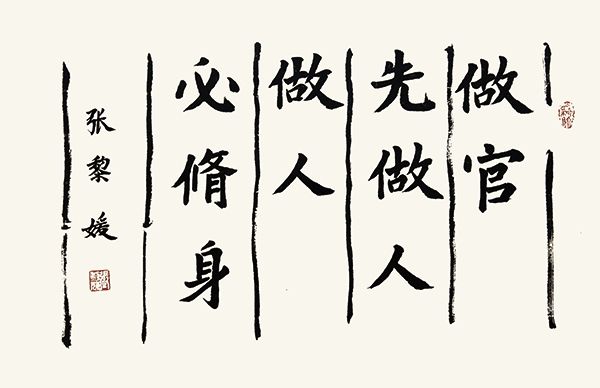 做官
先做人
做人
必脩身
张黎媛